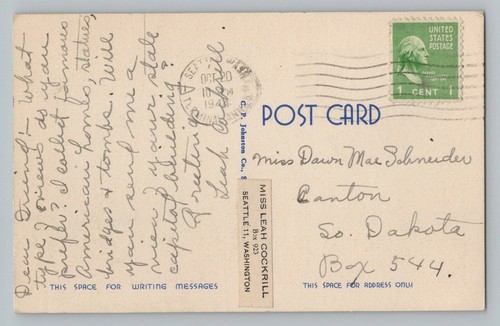 Dear Friend:- What
type views do you
prefer? I collect famous
American homes, statues,
bridges & tombs. Will
you send me a
view of your state
capitol building?
Greetings!
Leah Cockrill.
SEATTLE, WASH.
UNITED STATES
POSTAGE
1 CENT 1
POST CARD
C. P. Johnston Co., S
MISS LEAH COCKRILL
Box 923
SEATTLE 11, WASHINGTON
Miss Dawn Mae Schneider
Canton
So. Dakota
Box 544.
THIS SPACE FOR WRITING MESSAGES
THIS SPACE FOR ADDRESS ONLY